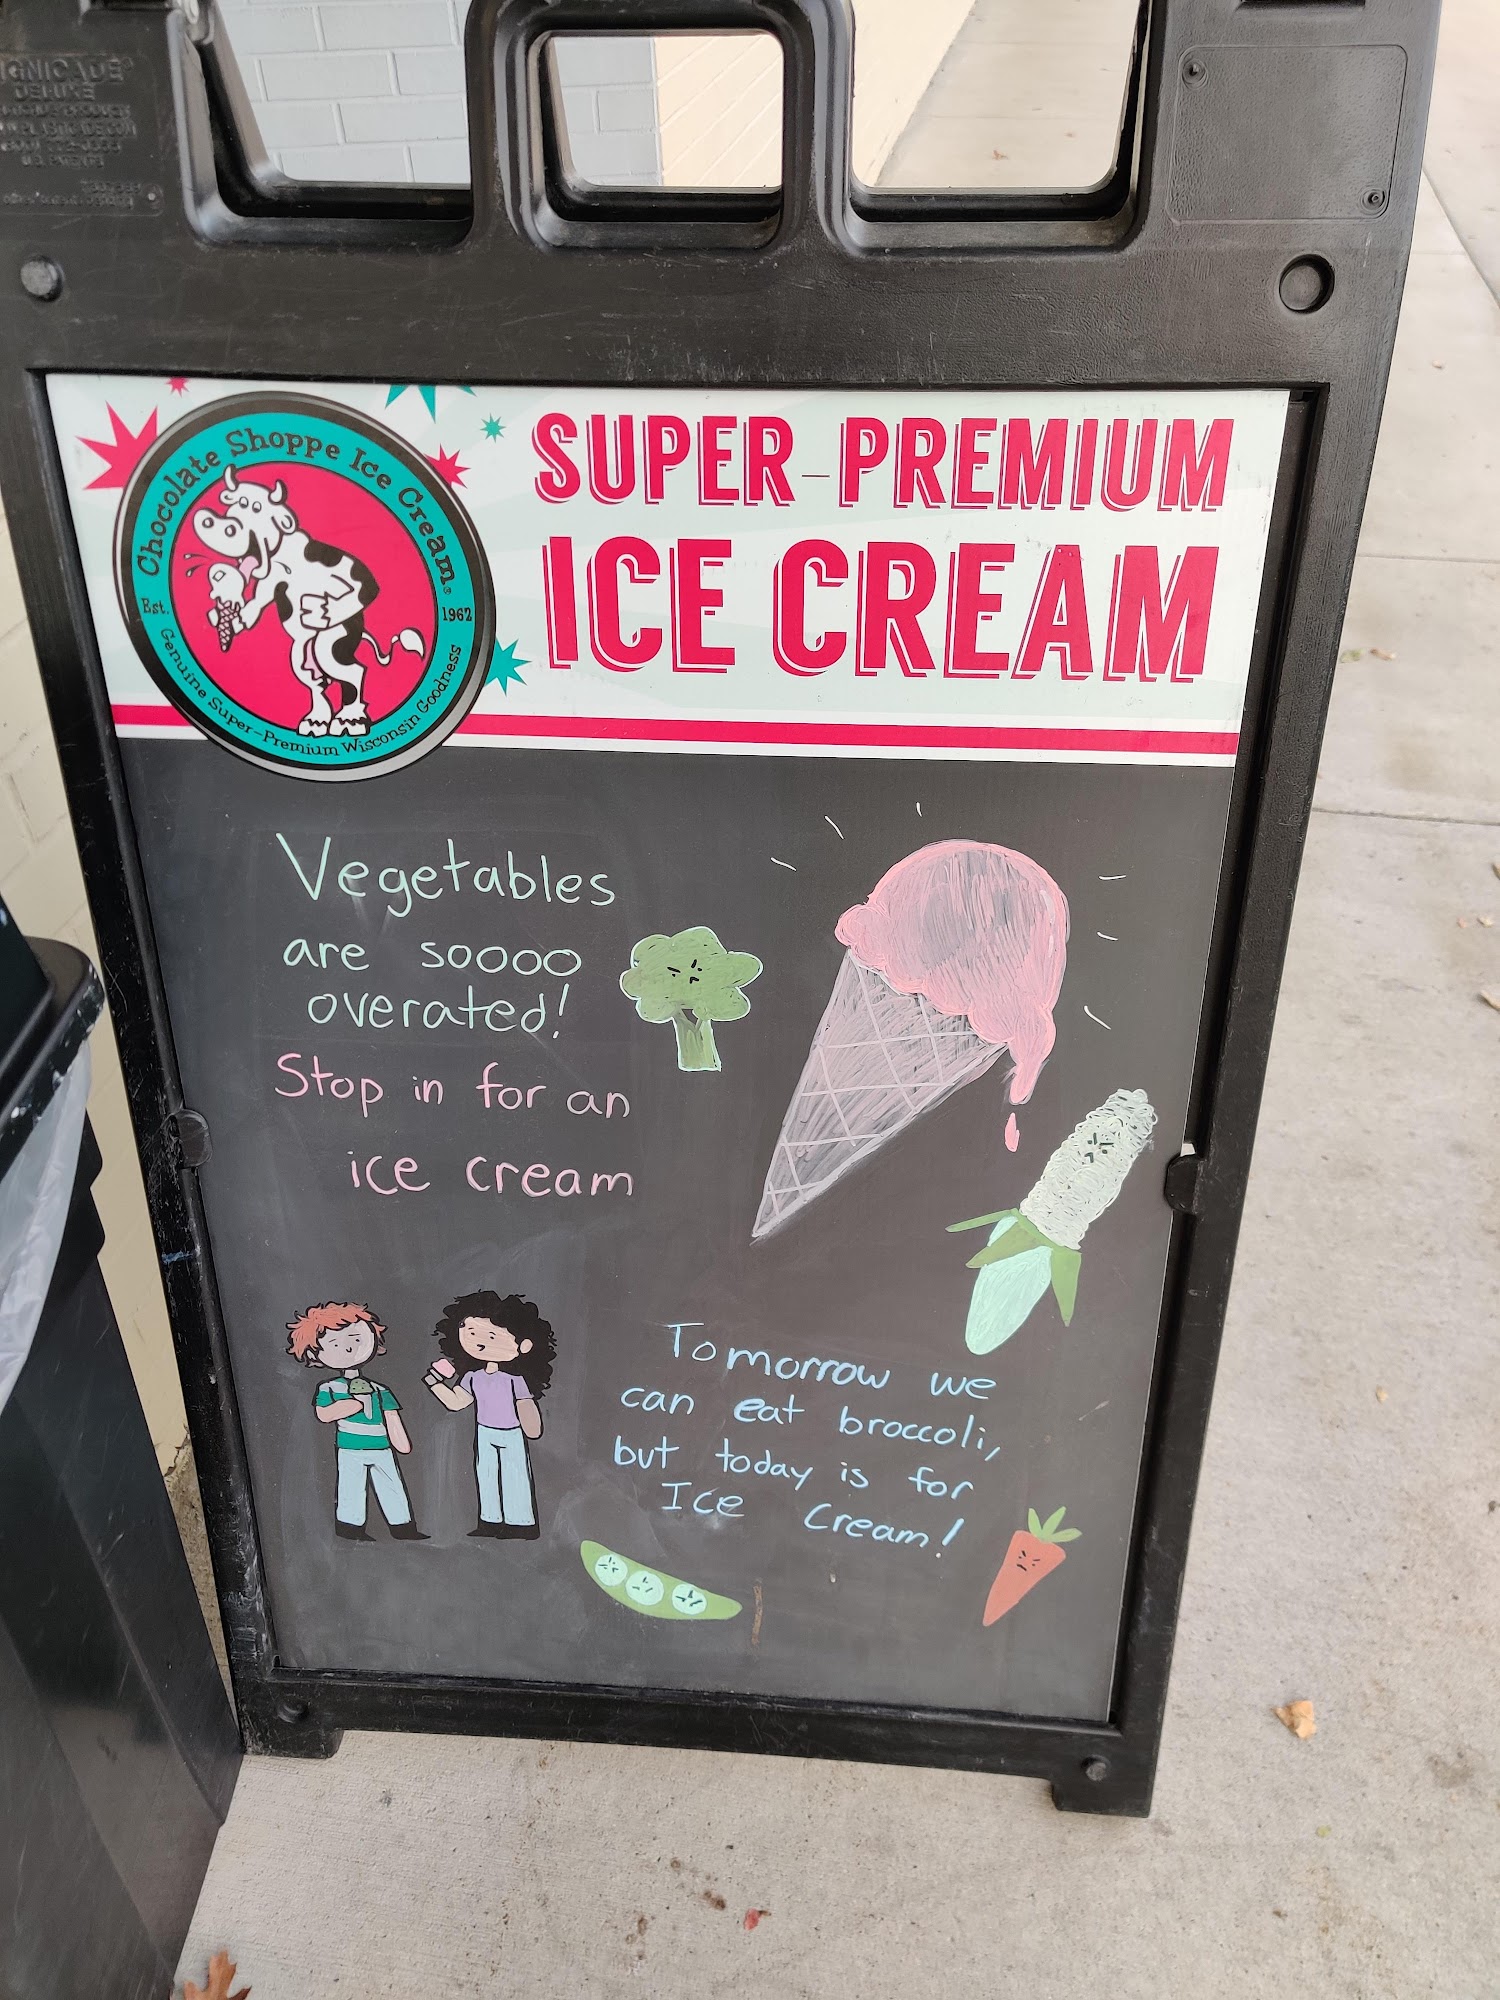 IGNICADE®
DELUXE
Chocolate Shoppe Ice Cream®
Est. 1962
Genuine Super-Premium Wisconsin Goodness
SUPER-PREMIUM
ICE CREAM
Vegetables
are soooo
overated!
Stop in for an
ice cream
Tomorrow we
can eat broccoli,
but today is for
Ice Cream!